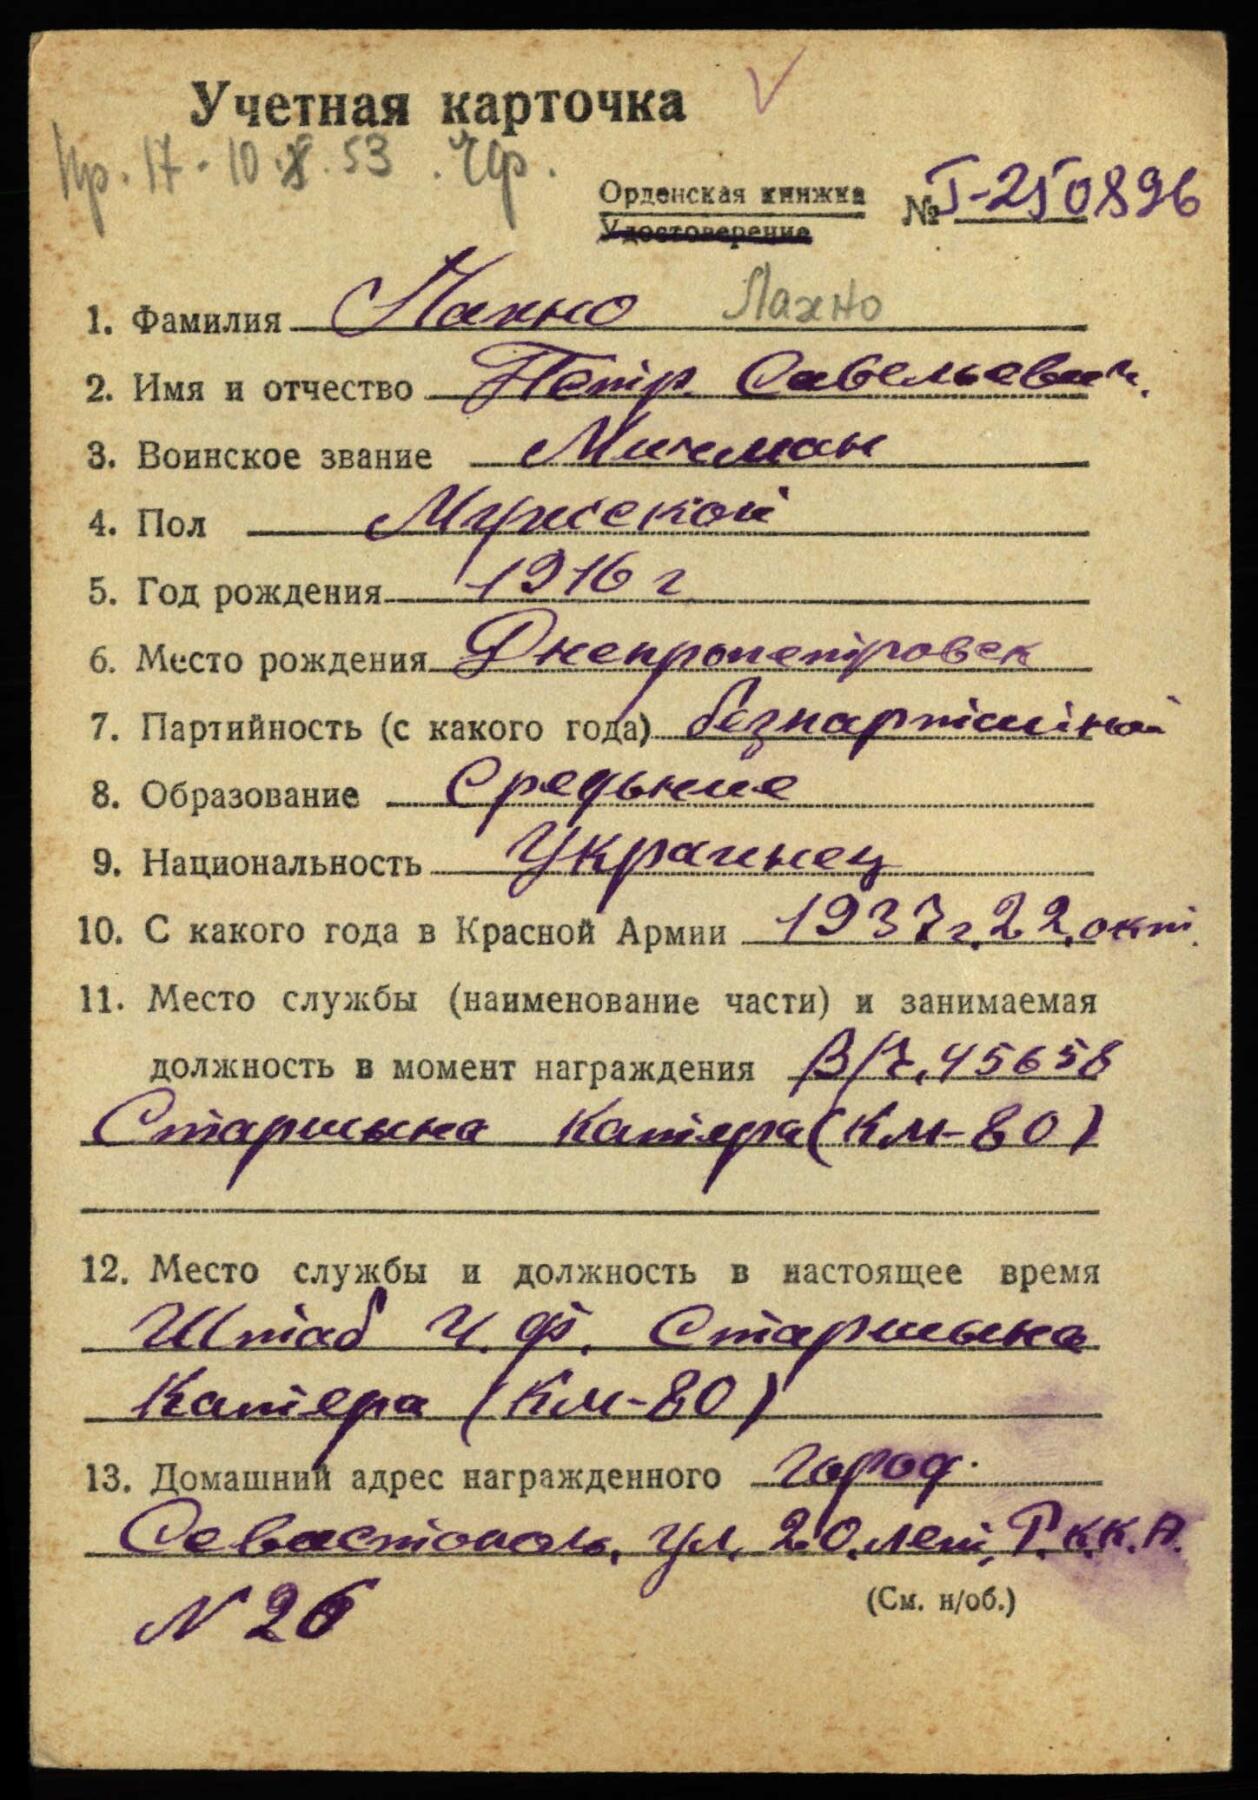 Учетная карточка
Пр. 17 - 10.X.53. Чф.
Орденская книжка № Г-250896
Удостоверение
1. Фамилия Лахно Лахно
2. Имя и отчество Пётр. Савельевич.
3. Воинское звание Мичман
4. Пол Мужской
5. Год рождения 1916 г
6. Место рождения Днепропетровск
7. Партийность (с какого года) безпартийной
8. Образование Средьние
9. Национальность Украинец
10. С какого года в Красной Армии 1937 г. 22. окт.
11. Место службы (наименование части) и занимаемая
должность в момент награждения В/Ч. 45658
Старшына Катера (КМ-80)
12. Место службы и должность в настоящее время
Штаб Ч.Ф. Старшына
Катера (КМ-80)
13. Домашний адрес награжденного город.
Севастополь. ул. 20. лет. Р.К.К.А.
N 26
(См. н/об.)